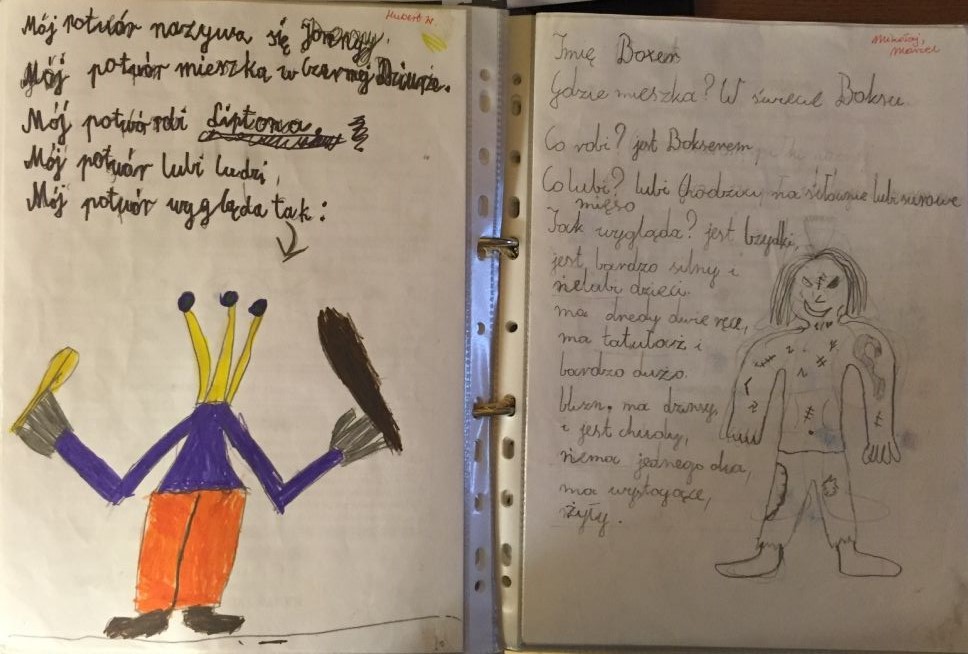 Hubert W.
Mój potwór nazywa się
Mój potwór mieszka w Czarnej Dziurze.
Mój potwór robi Liptona.
Mój potwór lubi ludzi.
Mój potwór wygląda tak:
Mikołaj,
Marcel
Imię Boxem
Gdzie mieszka? W świecie Boksu
Co robi? jest Bokserem
Co lubi? lubi chodzić na siłownie lubi surowe
mięso
Jak wygląda? jest brzydki,
jest bardzo silny i
nielubi dzieci.
ma dredy dwie ręce,
ma tatułaż i
bardzo dużo
blizn, ma dżinsy,
i jest chudy,
niema jednego oka,
ma wystające,
żyły.